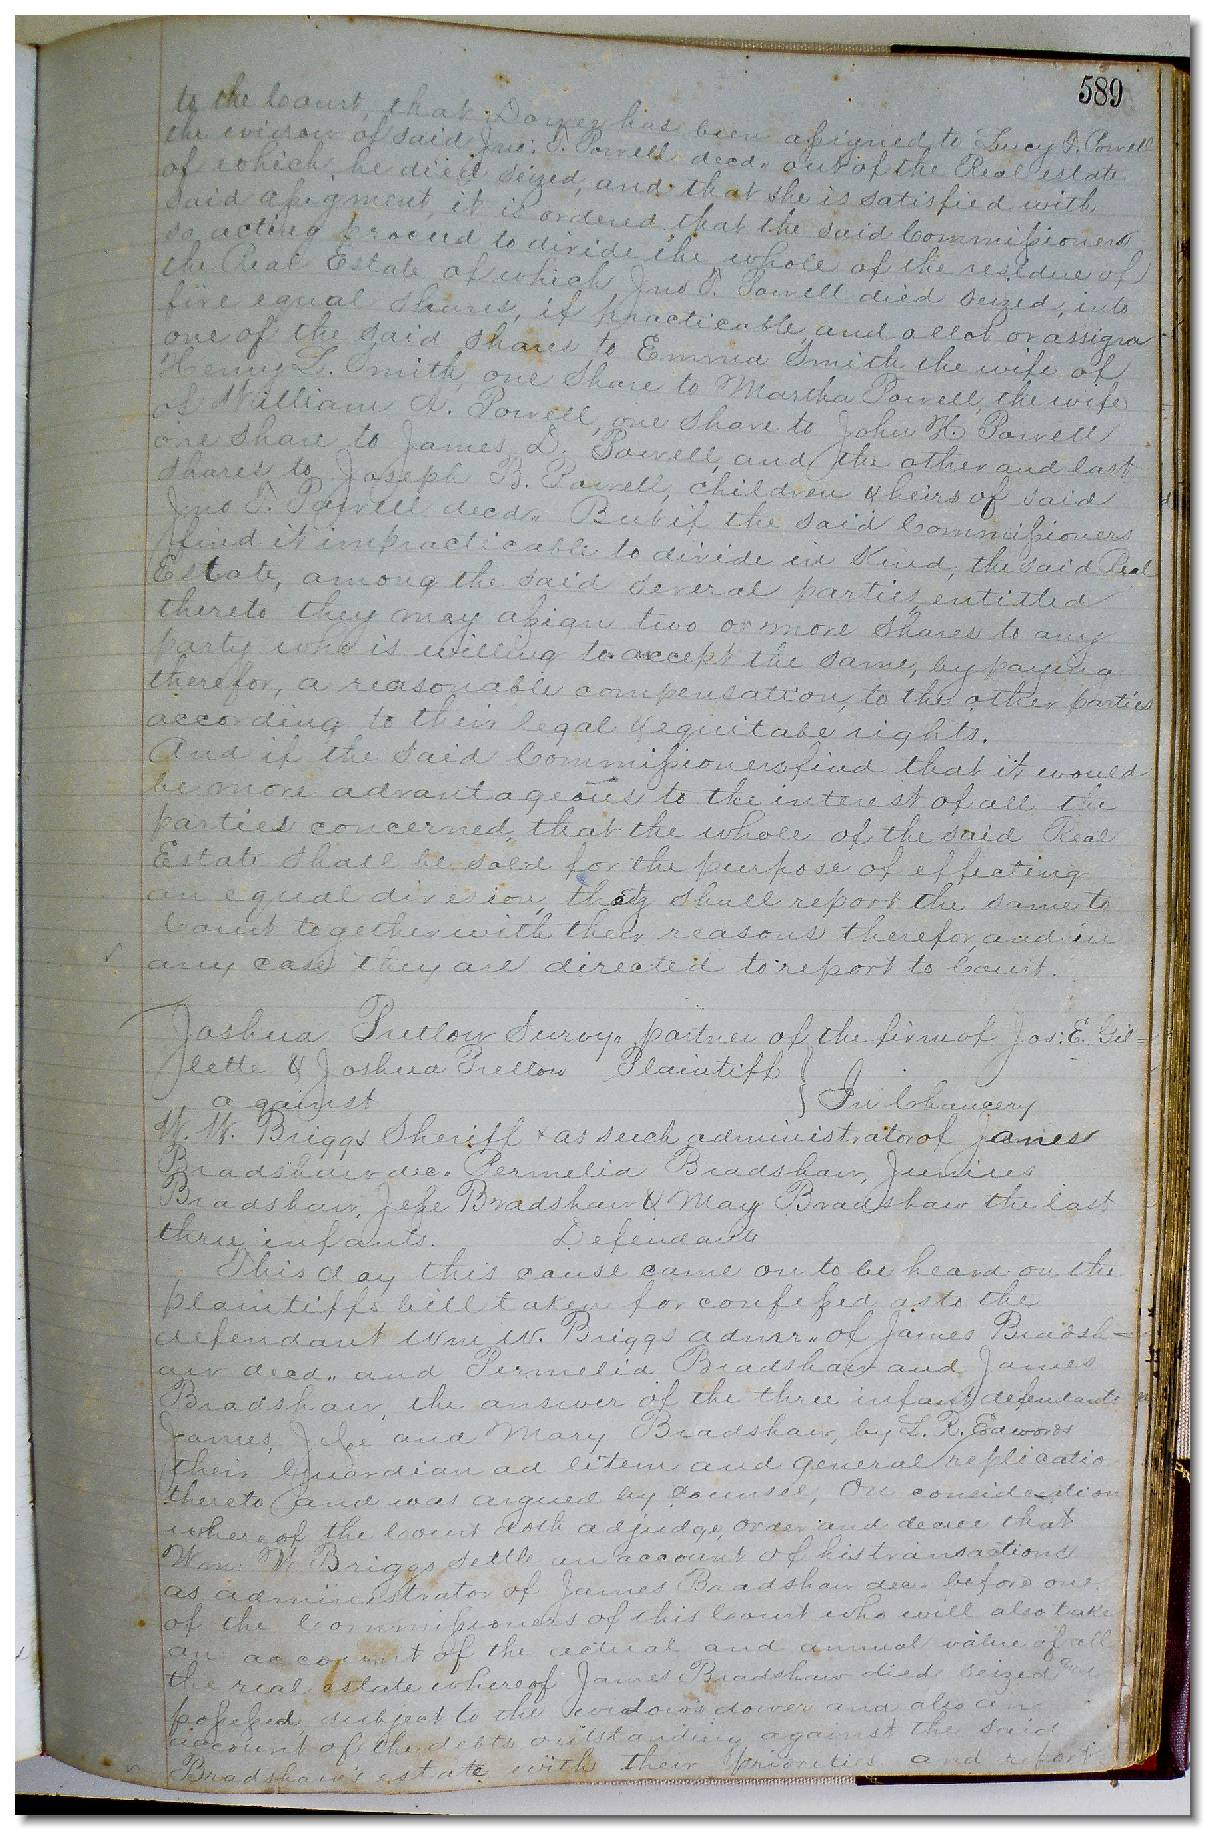 589
to the Court, that Dower has been assigned to Lucy P. Powell
the widow of said Jno. T. Powell decd. out of the Real estate
of which he died seized, and that she is satisfied with
said assignment, it is ordered that the said Commissioners
so acting proceed to divide the whole of the residue of
the Real Estate of which Jno T. Powell died seized, into
five equal shares, if practicable and allot or assign
one of the said shares to Emma Smith the wife of
Henry L. Smith, one share to Martha Powell, the wife
of William A. Powell, one share to John H Powell
one share to James D. Powell, and the other and last
shares to Joseph B. Powell, children & heirs of said
Jno T. Powell decd. But if the said Commissioners
find it impracticable to divide in Kind, the said Real
Estate, among the said several parties entitled
thereto they may assign two or more shares to any
party who is willing to accept the same, by paying
therefor, a reasonable compensation, to the other parties
according to their legal & equitabe rights.
And if the said Commissioners find that it would
be more advantageous to the interest of all the
parties concerned, that the whole of the said Real
Estate shall be sold for the purpose of effecting
an equal division, they shall report the same to
Court together with their reasons therefor, and in
any case they are directed to report to Court.
Joshua Pretlow Survg. partner of the firm of Jos: E. Gil=
lette & Joshua Pretlow Plaintiff
against } In Chancery
W. W. Briggs Sheriff & as such administrator of James
Bradshaw dec. Permelia Bradshaw, Junius
Bradshaw, Jesse Bradshaw & May Bradshaw the last
three infants. Defendants
This day this cause came on to be heard on the
plaintiffs bill taken for confessed as to the
defendant Wm W. Briggs admr.. of James Bradsh=
aw decd.. and Permelia Bradshaw and James
Bradshaw, the answer of the three infant defendants
James, Jesse and Mary Bradshaw, by L. R. Edwards
their Guardian ad litem and general replicatio
thereto and was argued by counsel, On consideration
whereof the Court doth adjudge, order and decree that
Wm. W. Briggs settle an account of his transactions
as administrator of James Bradshaw dec. before one
of the Commissioners of this Court who will also take
an account of the actual and annual value of all
the real estate whereof James Bradshaw died seized and
possessed subject to the widow's dower and also an
account of the debts outstanding against the said
Bradshaw's estate with their priorities and report